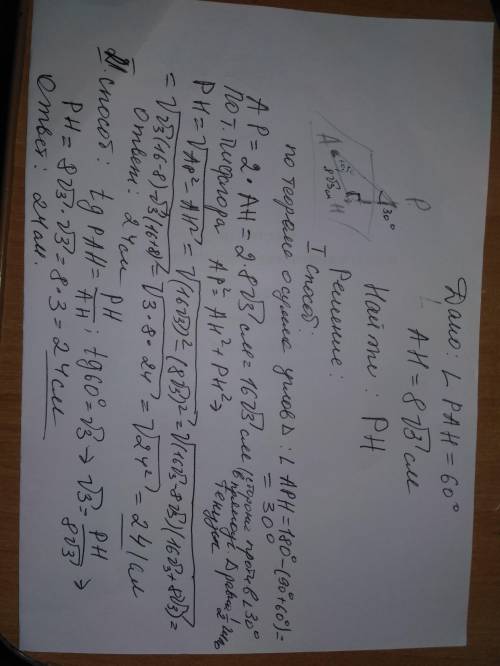 Дано: ∠ PAH = 60°
AH = 8√3 см
Найти: PH
P
30°
A
60°
8√3 см
H
Решение:
I способ:
по теореме о сумме углов Δ: ∠ APH = 180° - (90° + 60°) =
= 30°
AP = 2 · AH = 2 · 8√3 см = 16√3 см (сторона против ∠30°
в прямоуг. Δ равна ½ гипо
тенузы
По т. Пифагора AP² = AH² + PH² ⇒
PH = √AP² - AH² = √(16√3)² - (8√3)² = √(16√3 - 8√3)(16√3 + 8√3) =
= √√3(16-8)·√3(16+8) = √3·8·24 = √24² = 24 см
Ответ: 24 см
II способ: tg PAH = PH/AH ; tg 60° = √3 ⇒ √3 = PH/8√3 ⇒
PH = 8√3 · √3 = 8 · 3 = 24 см
Ответ: 24 см.